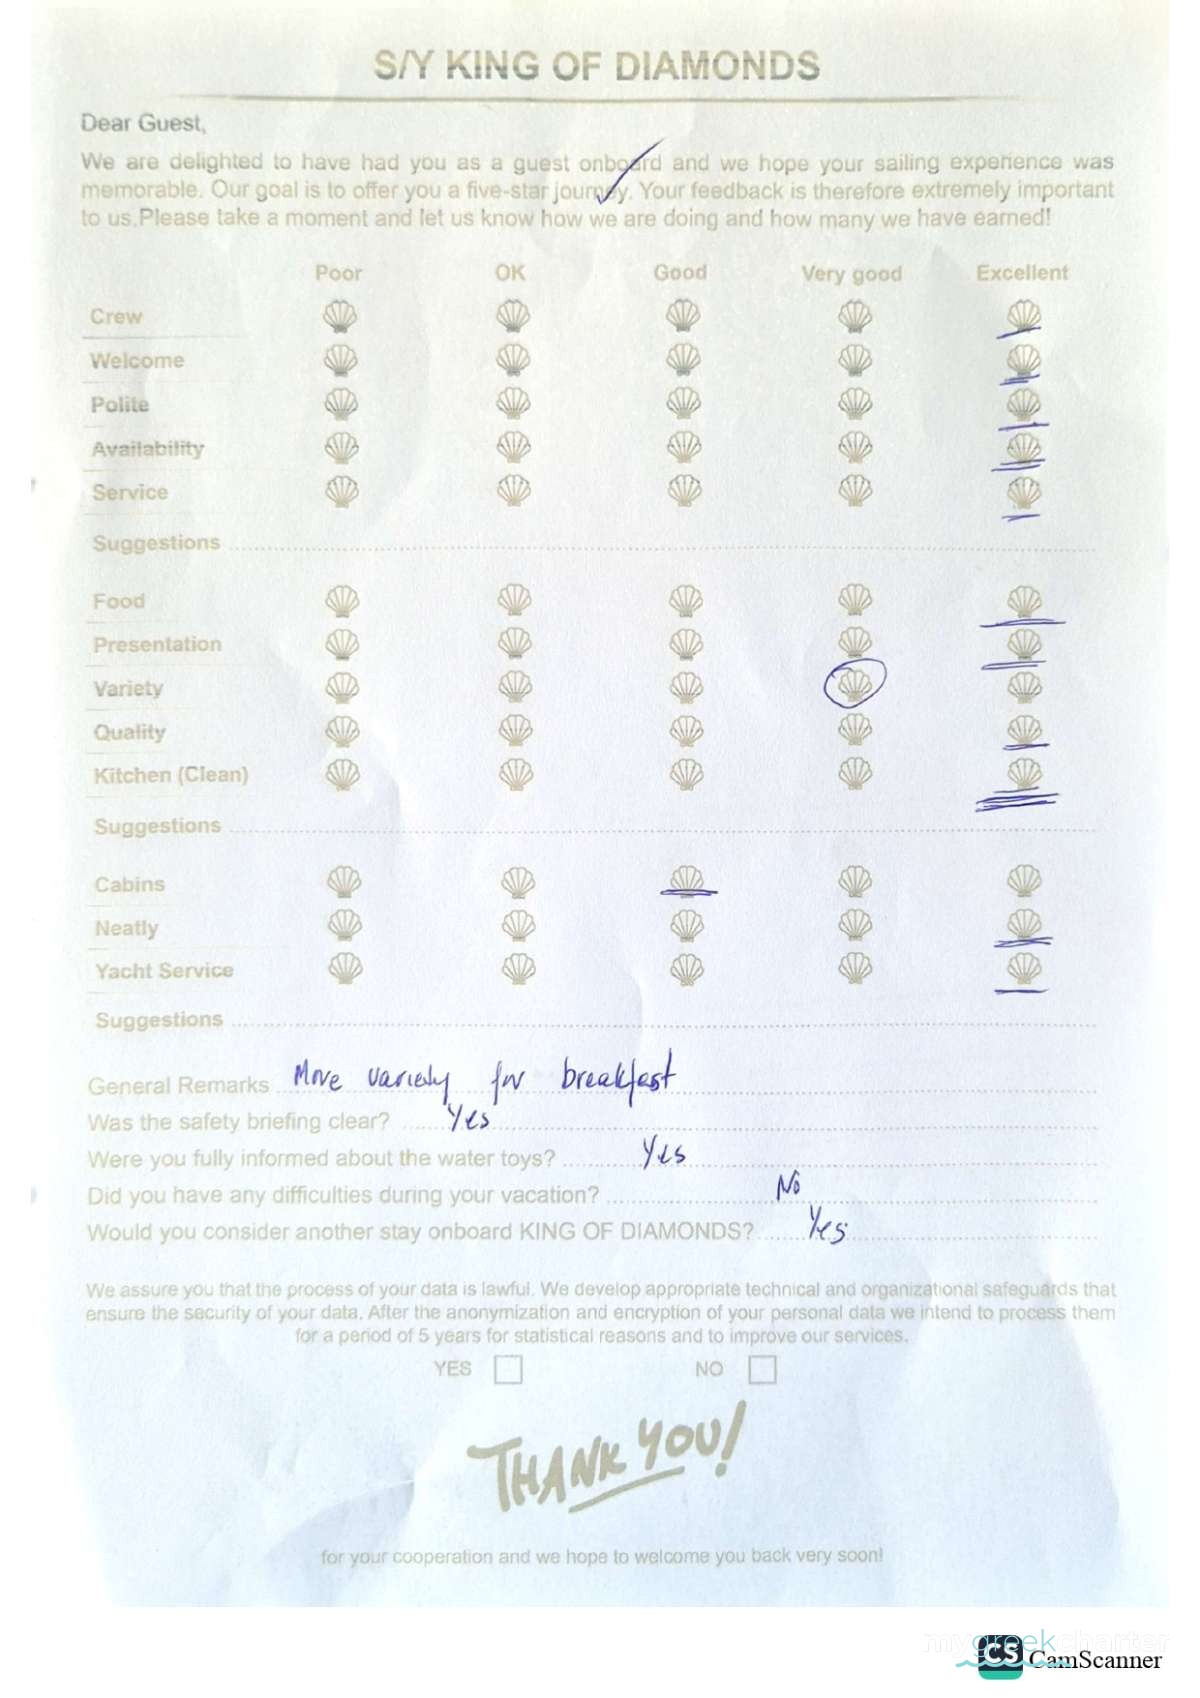 S/Y KING OF DIAMONDS
Dear Guest,
We are delighted to have had you as a guest onboard and we hope your sailing experience was
memorable. Our goal is to offer you a five-star journey. Your feedback is therefore extremely important
to us.Please take a moment and let us know how we are doing and how many we have earned!
Poor OK Good Very good Excellent
Crew
Welcome
Polite
Availability
Service
Suggestions
Food
Presentation
Variety
Quality
Kitchen (Clean)
Suggestions
Cabins
Neatly
Yacht Service
Suggestions
General Remarks More variety for breakfast
Was the safety briefing clear? Yes
Were you fully informed about the water toys? Yes
Did you have any difficulties during your vacation? No
Would you consider another stay onboard KING OF DIAMONDS? Yes
We assure you that the process of your data is lawful. We develop appropriate technical and organizational safeguards that
ensure the security of your data. After the anonymization and encryption of your personal data we intend to process them
for a period of 5 years for statistical reasons and to improve our services.
YES NO
THANK YOU!
for your cooperation and we hope to welcome you back very soon!
mygreekcharter
CS CamScanner